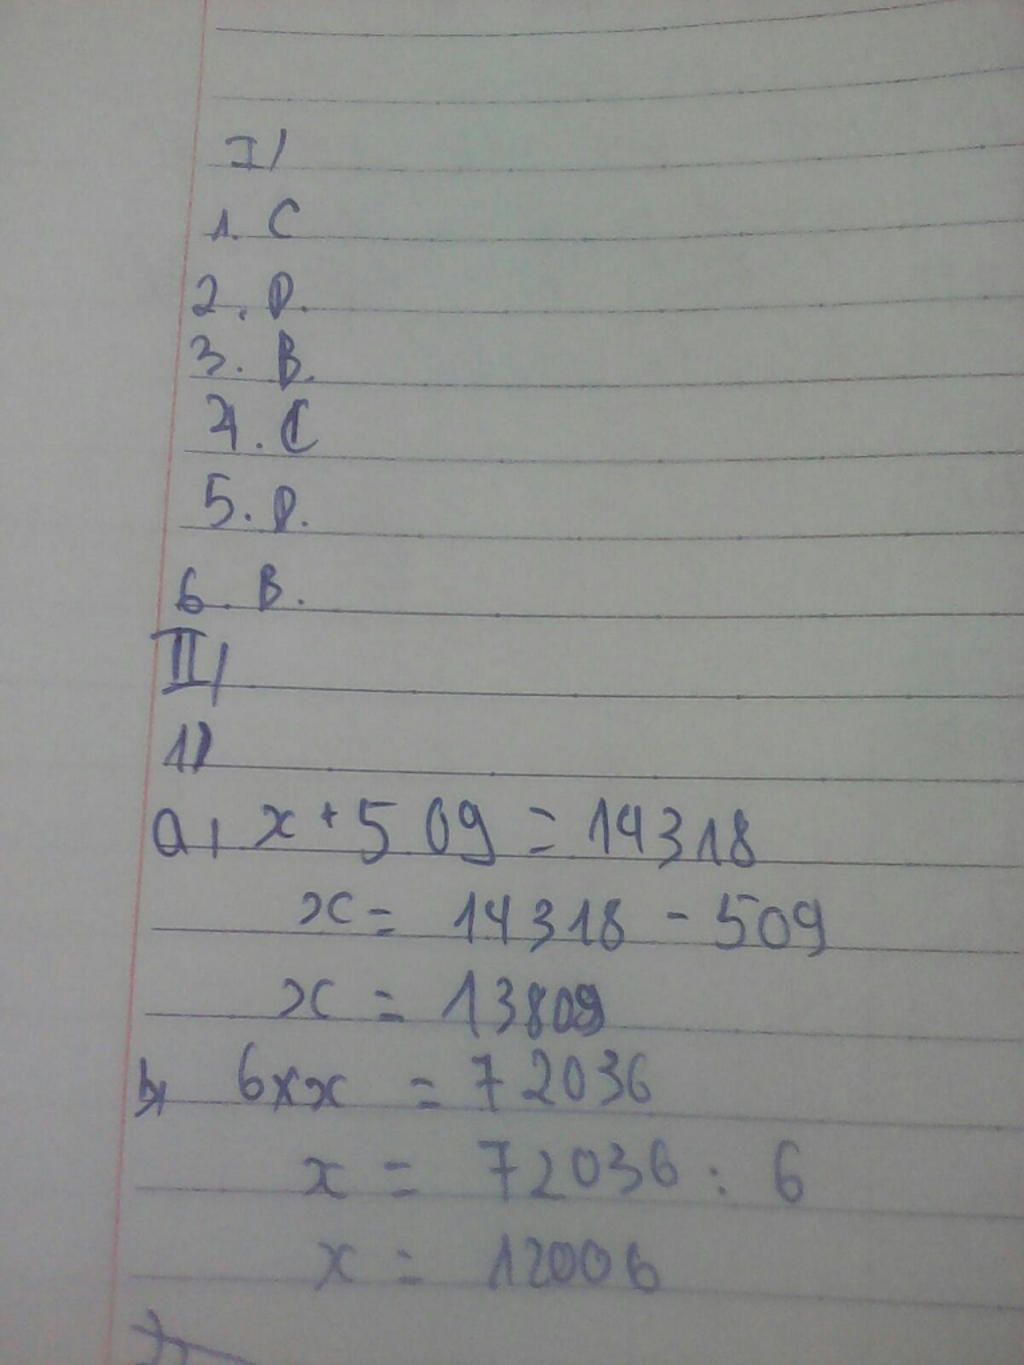 I/
1. C
2. D.
3. B.
4. C
5. D.
6. B.
II/
1)
a, x + 509 = 14318
x = 14318 - 509
x = 13809
b, 6 x x = 72036
x = 72036 : 6
x = 12006